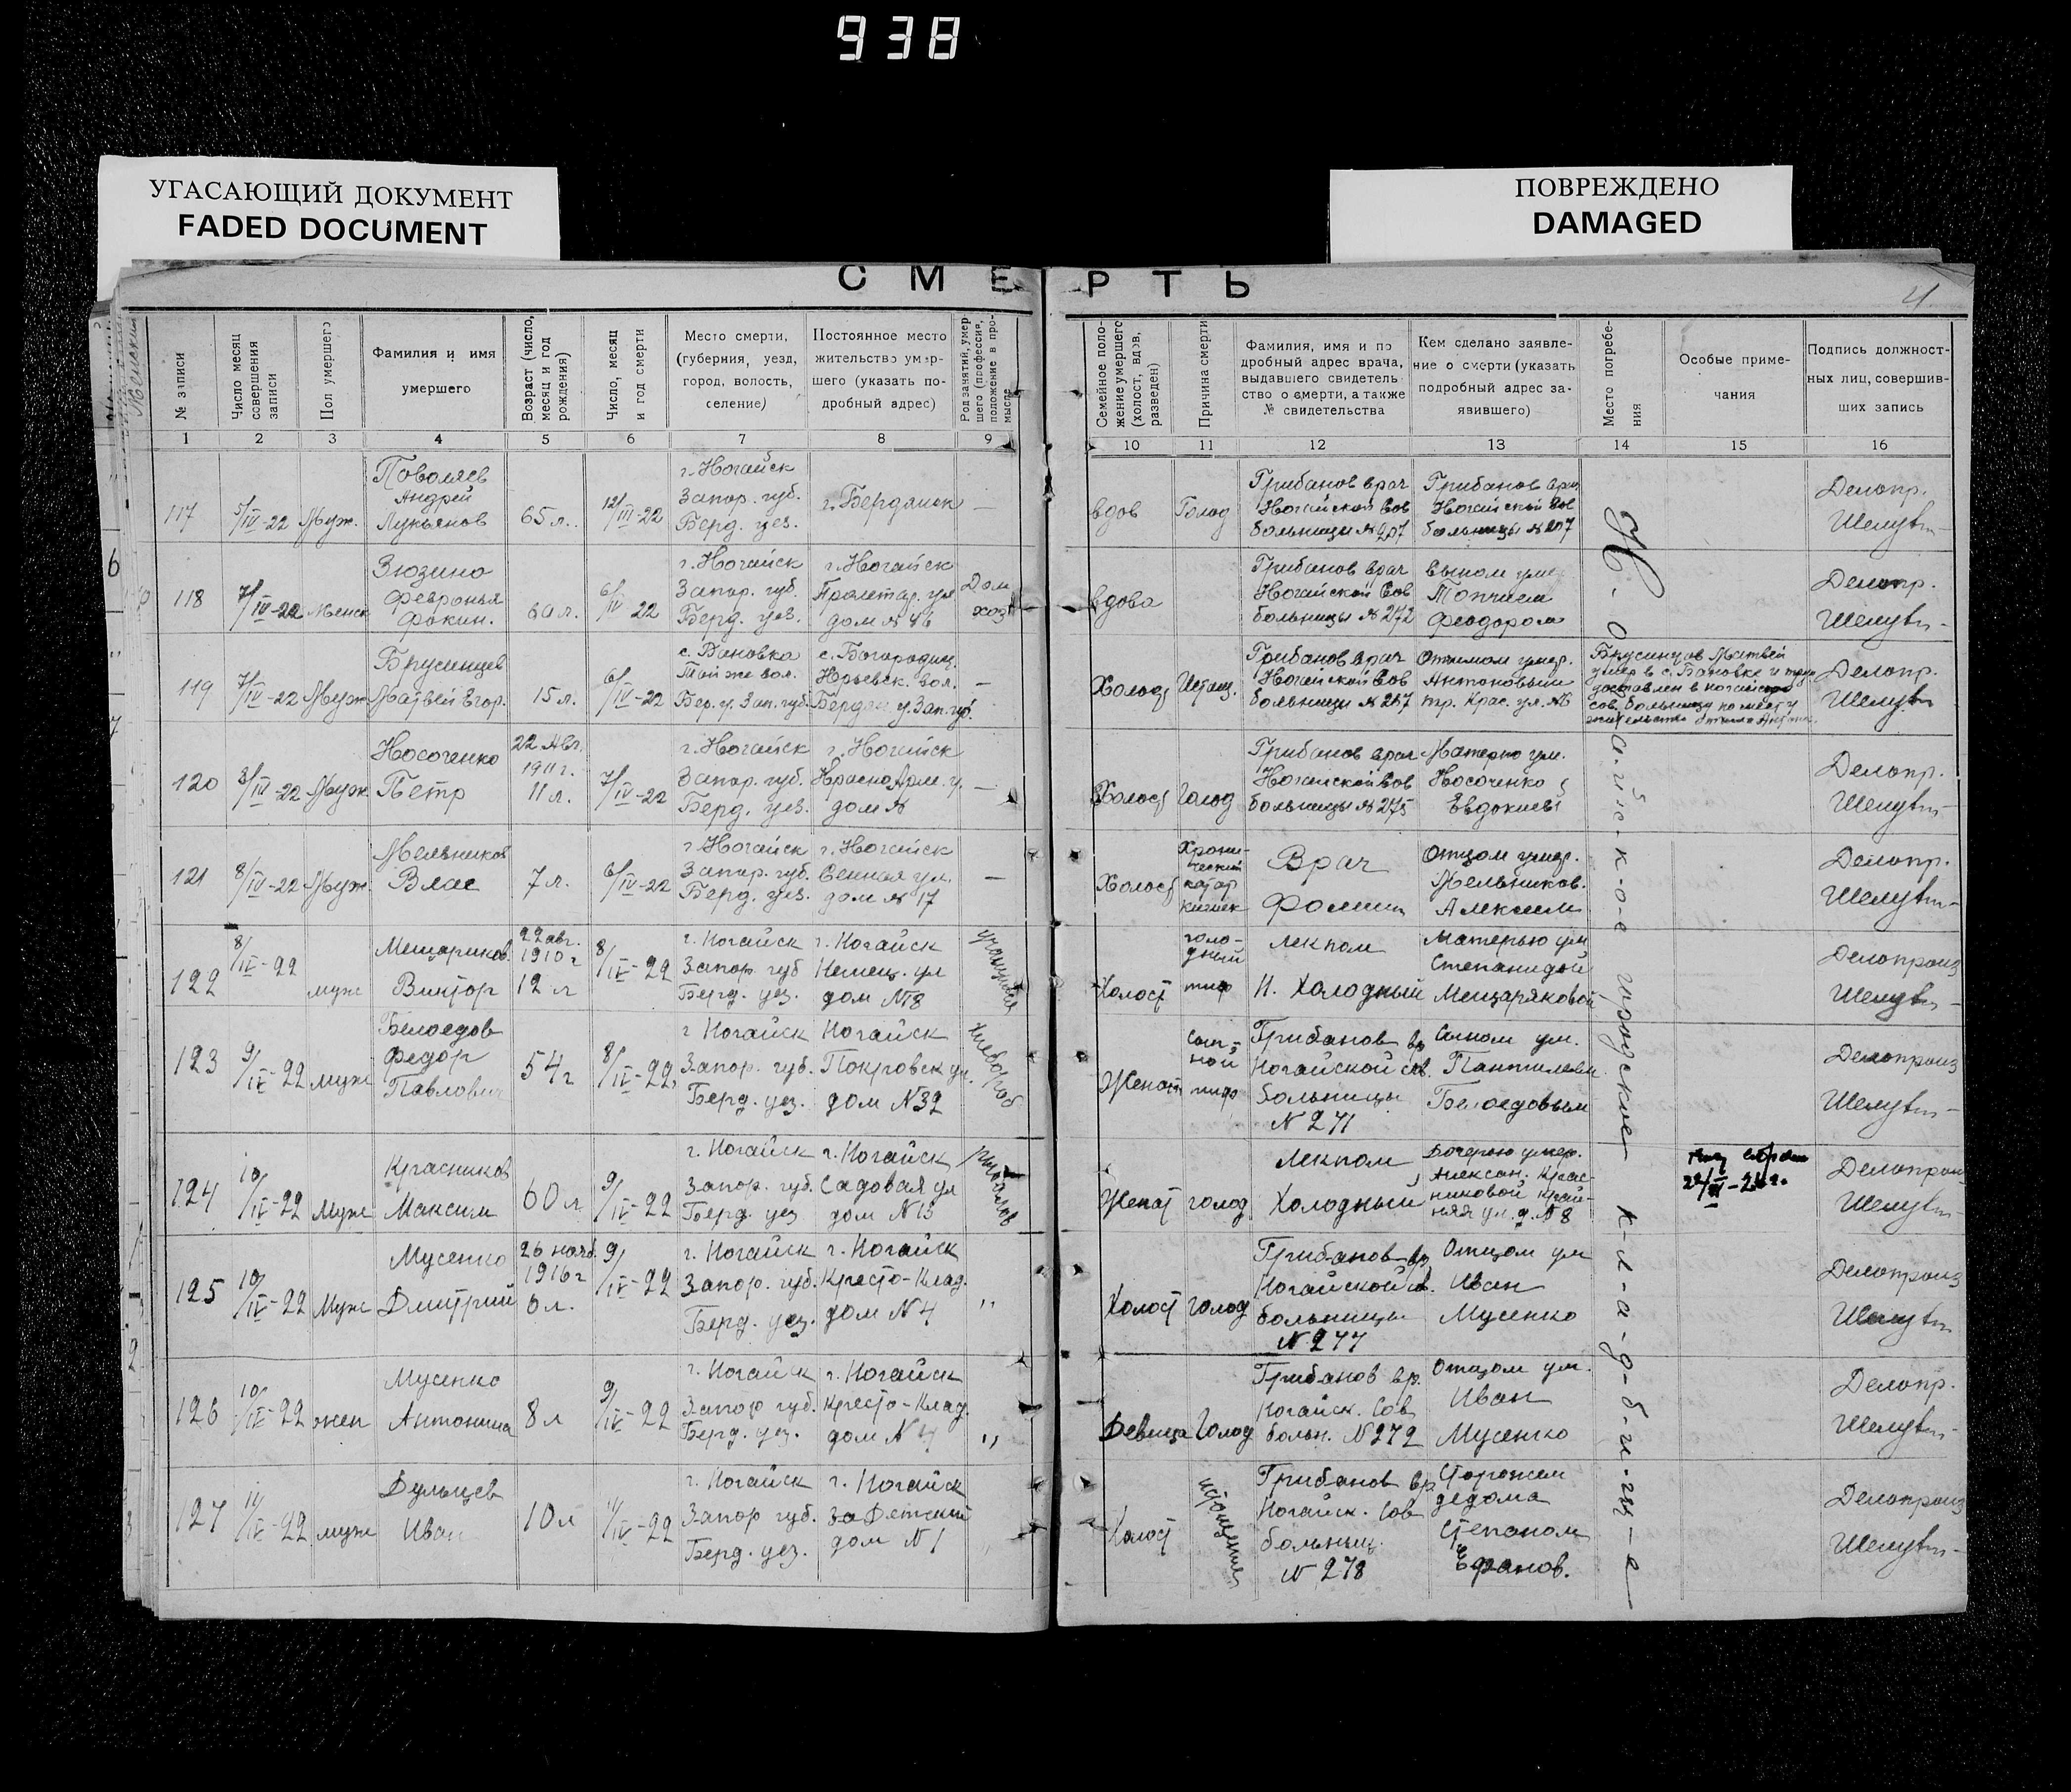 938
УГАСАЮЩИЙ ДОКУМЕНТ
FADED DOCUMENT
ПОВРЕЖДЕНО
DAMAGED
СМЕРТЬ
4
№ записи
Число месяц совершения записи
Пол умершего
Фамилия и имя умершего
Возраст (число, месяц и год рождения)
Число, месяц и год смерти
Место смерти, (губерния, уезд, город, волость, селение)
Постоянное место жительства умершего (указать подробный адрес)
Род занятий, умершего (профессия, положение в промысле
Семейное положение умершего (холост, вдов, разведен)
Причина смерти
Фамилия, имя и подробный адрес врача, выдавшего свидетельство о смерти, а также № свидетельства
Кем сделано заявление о смерти (указать подробный адрес заявившего)
Место погребения
Особые примечания
Подпись должностных лиц, совершивших запись
1 2 3 4 5 6 7 8 9 10 11 12 13 14 15 16
117 5/IV-22 Муж. Поволяев Андрей Лукьянов 65 л. 12/III-22 г. Ногайск Запор. губ. Берд. уез. г. Бердянск — вдов Голод Грибанов врач Ногайской Сов больницы № 207 Грибанов врач Ногайской Сов больницы № 207 Делопр.
118 7/IV-22 Женск Зюзино Февронья Фокин. 60 л. 6/IV 22 г. Ногайск Запор. губ. Берд. уез. г. Ногайск Пролетар. ул дом № 46 Дом хоз вдова Грибанов врач Ногайской Сов больницы № 272 Феодором Делопр.
119 7/IV-22 Муж Брусенцев Матвей Егор. 15 л. 6/IV-22 с. Бановка Той же вол. Бер. у. Зап. губ. с. Богородиц. Юрьевск. вол. Бердян у. Зап. губ. — Холост Истощ. Грибанов врач Ногайской Сов больницы № 267 Антоновым Крас. ул. №6 умер в с. Бановке и доставлен в Ногайскую сов. больницу по месту жительства Делопр.
120 8/IV-22 Муж. Носоченко Петр 22 Авг. 1911 г. 11 л. 7/IV-22 г. Ногайск Запор. губ. Берд. уез. г. Ногайск Красно Арм. у. дом № — Холост Голод Грибанов врач Ногайской Сов больницы № 275 Матерью ум. Носоченко Евдокией Делопр.
121 8/IV-22 Муж. Мельников Влас 7 л. 6/IV-22 г. Ногайск Запор. губ. Берд. уез. г. Ногайск Сенная ул. дом № 17 — Холост Хронический катар кишек Врач Фомин Отцом умер. Мельников. Алексием Делопр.
122 8/IV-22 муж Мещариков. Виктор 22 авг. 1910 г 12 л 8/IV-22 г. Ногайск Запор. губ Берд. уез. г. Ногайск Немец. ул дом №18 учащийся Холост голодный тиф лекпом И. Холодный Матерью ум Степанидой Мещаряковой Делопроиз
123 9/IV-22 муж Белоедов Федор Павлович 54 г 8/IV-22, г Ногайск Запор. губ. Берд. уез. Ногайск Покровск ул. дом №32 хлебороб Женат сыпной тиф Грибанов вр Ногайской сов. больницы № 271 Сыном ум. Пантилеем Белоедовым Делопроиз
124 10/IV-22 Муж Красников Максим 60 л 9/IV-22 г. Ногайск Запор. губ. Берд. уез г. Ногайск Садовая ул дом №13 рыболов Женат голод Лекпом Холодный Дочерью умер. Алексан. Красниковой Крайняя ул. д. №8 Делопроиз
125 10/IV-22 Муж Мусенко Дмитрий 26 нояб. 1916 г 6 л. 9/IV-22 г. Ногайск Запор. губ. Берд. уез. г. Ногайск Кресто-Клад. дом №4 " Холост голод Грибанов вр. Ногайской св. больницы № 277 Отцом ум Иван Мусенко Делопроиз
126 10/IV-22 жен Мусенко Антонина 8 л 9/IV-22 г. Ногайск Запор губ. Берд. уез. г. Ногайск Кресто-Клад. дом №4 " Девица Голод Грибанов вр. Ногайск. Сов больн. №272 Отцом ум. Иван Мусенко Делопр.
127 11/IV-22 муж Дульцев Иван 10 л 11/IV-22 г. Ногайск Запор губ. Берд. уез. г. Ногайск Детский дом №1 Холост истощение Грибанов вр Ногайск. Сов больниц. № 278 Сторожем дедома Степаном Ефанов. Делопроиз
Н-о-г-а-й-с-к-о-е городское к-л-а-д-б-и-щ-е